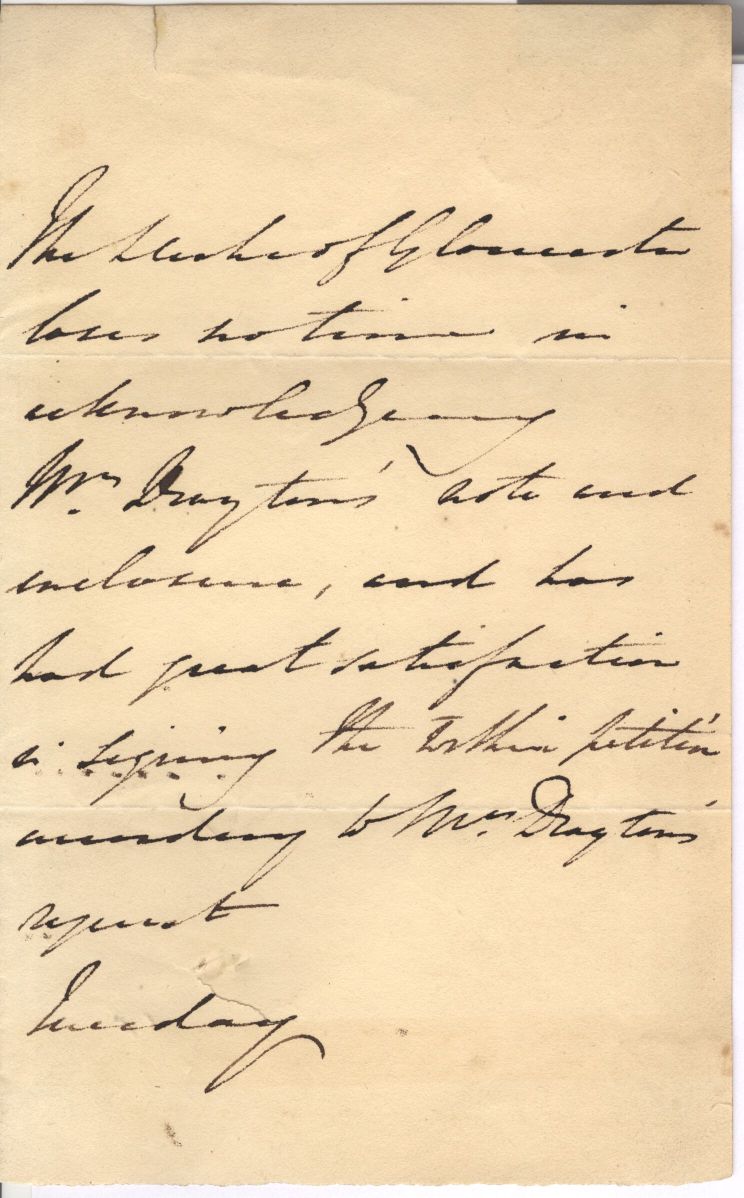 The Duke of Gloucester
loses no time in
acknowledgeing
Mrs. Drayton's note and
enclosure, and has
had great satisfaction
in signing the within petit'n
according to Mrs. Drayton's
request
Tuesday